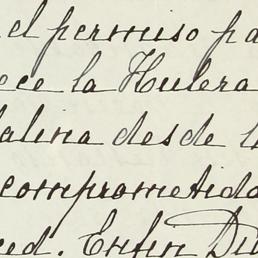 el permiso pa
ece la Hulera
alina desde l
comprometida
ed. Enfin Di